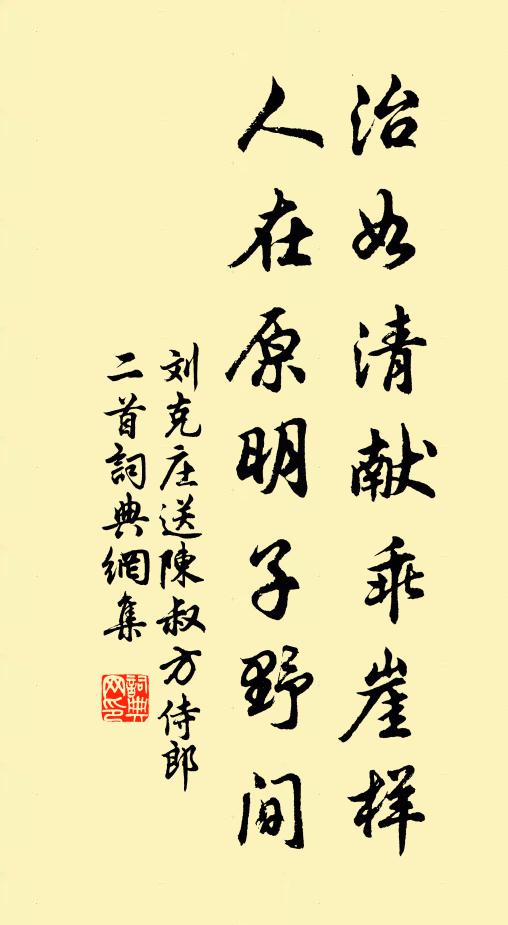 治如清献乖崖样
人在原明子野间
刘克庄送陳叔方侍郎
二首詞典網集
詞典
网印